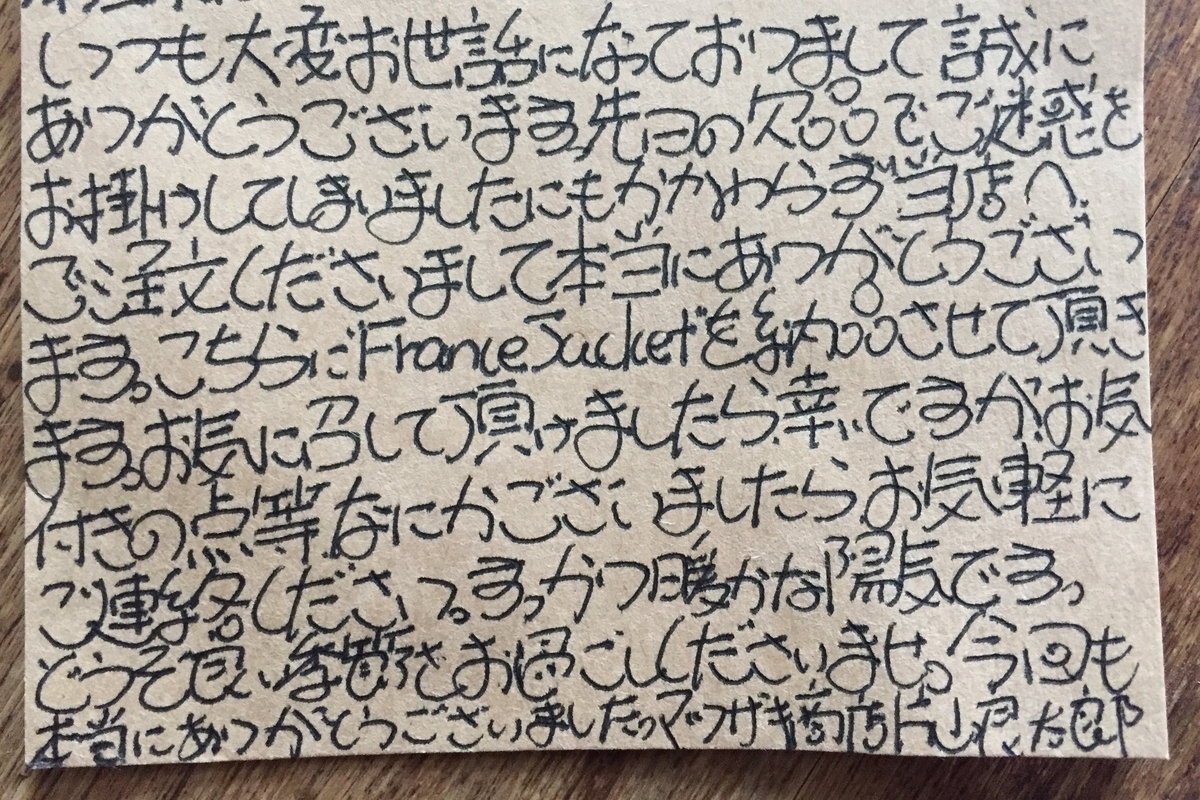 いつも大変お世話になっておりまして誠に
ありがとうございます。先日の欠品でご迷惑を
お掛けしてしまいましたにもかかわらず当店へ
ご注文くださいまして本当にありがとうござい
ます。こちらにFrance Jacketを納品させて頂き
ます。お気に召して頂けましたら幸いですが、お気
付きの点等、なにかございましたら、お気軽に
ご連絡ください。すっかり暖かな陽気です。
どうぞ良い季節をお過ごしくださいませ。今回も
本当にありがとうございました。マツザキ商店片山良太郎